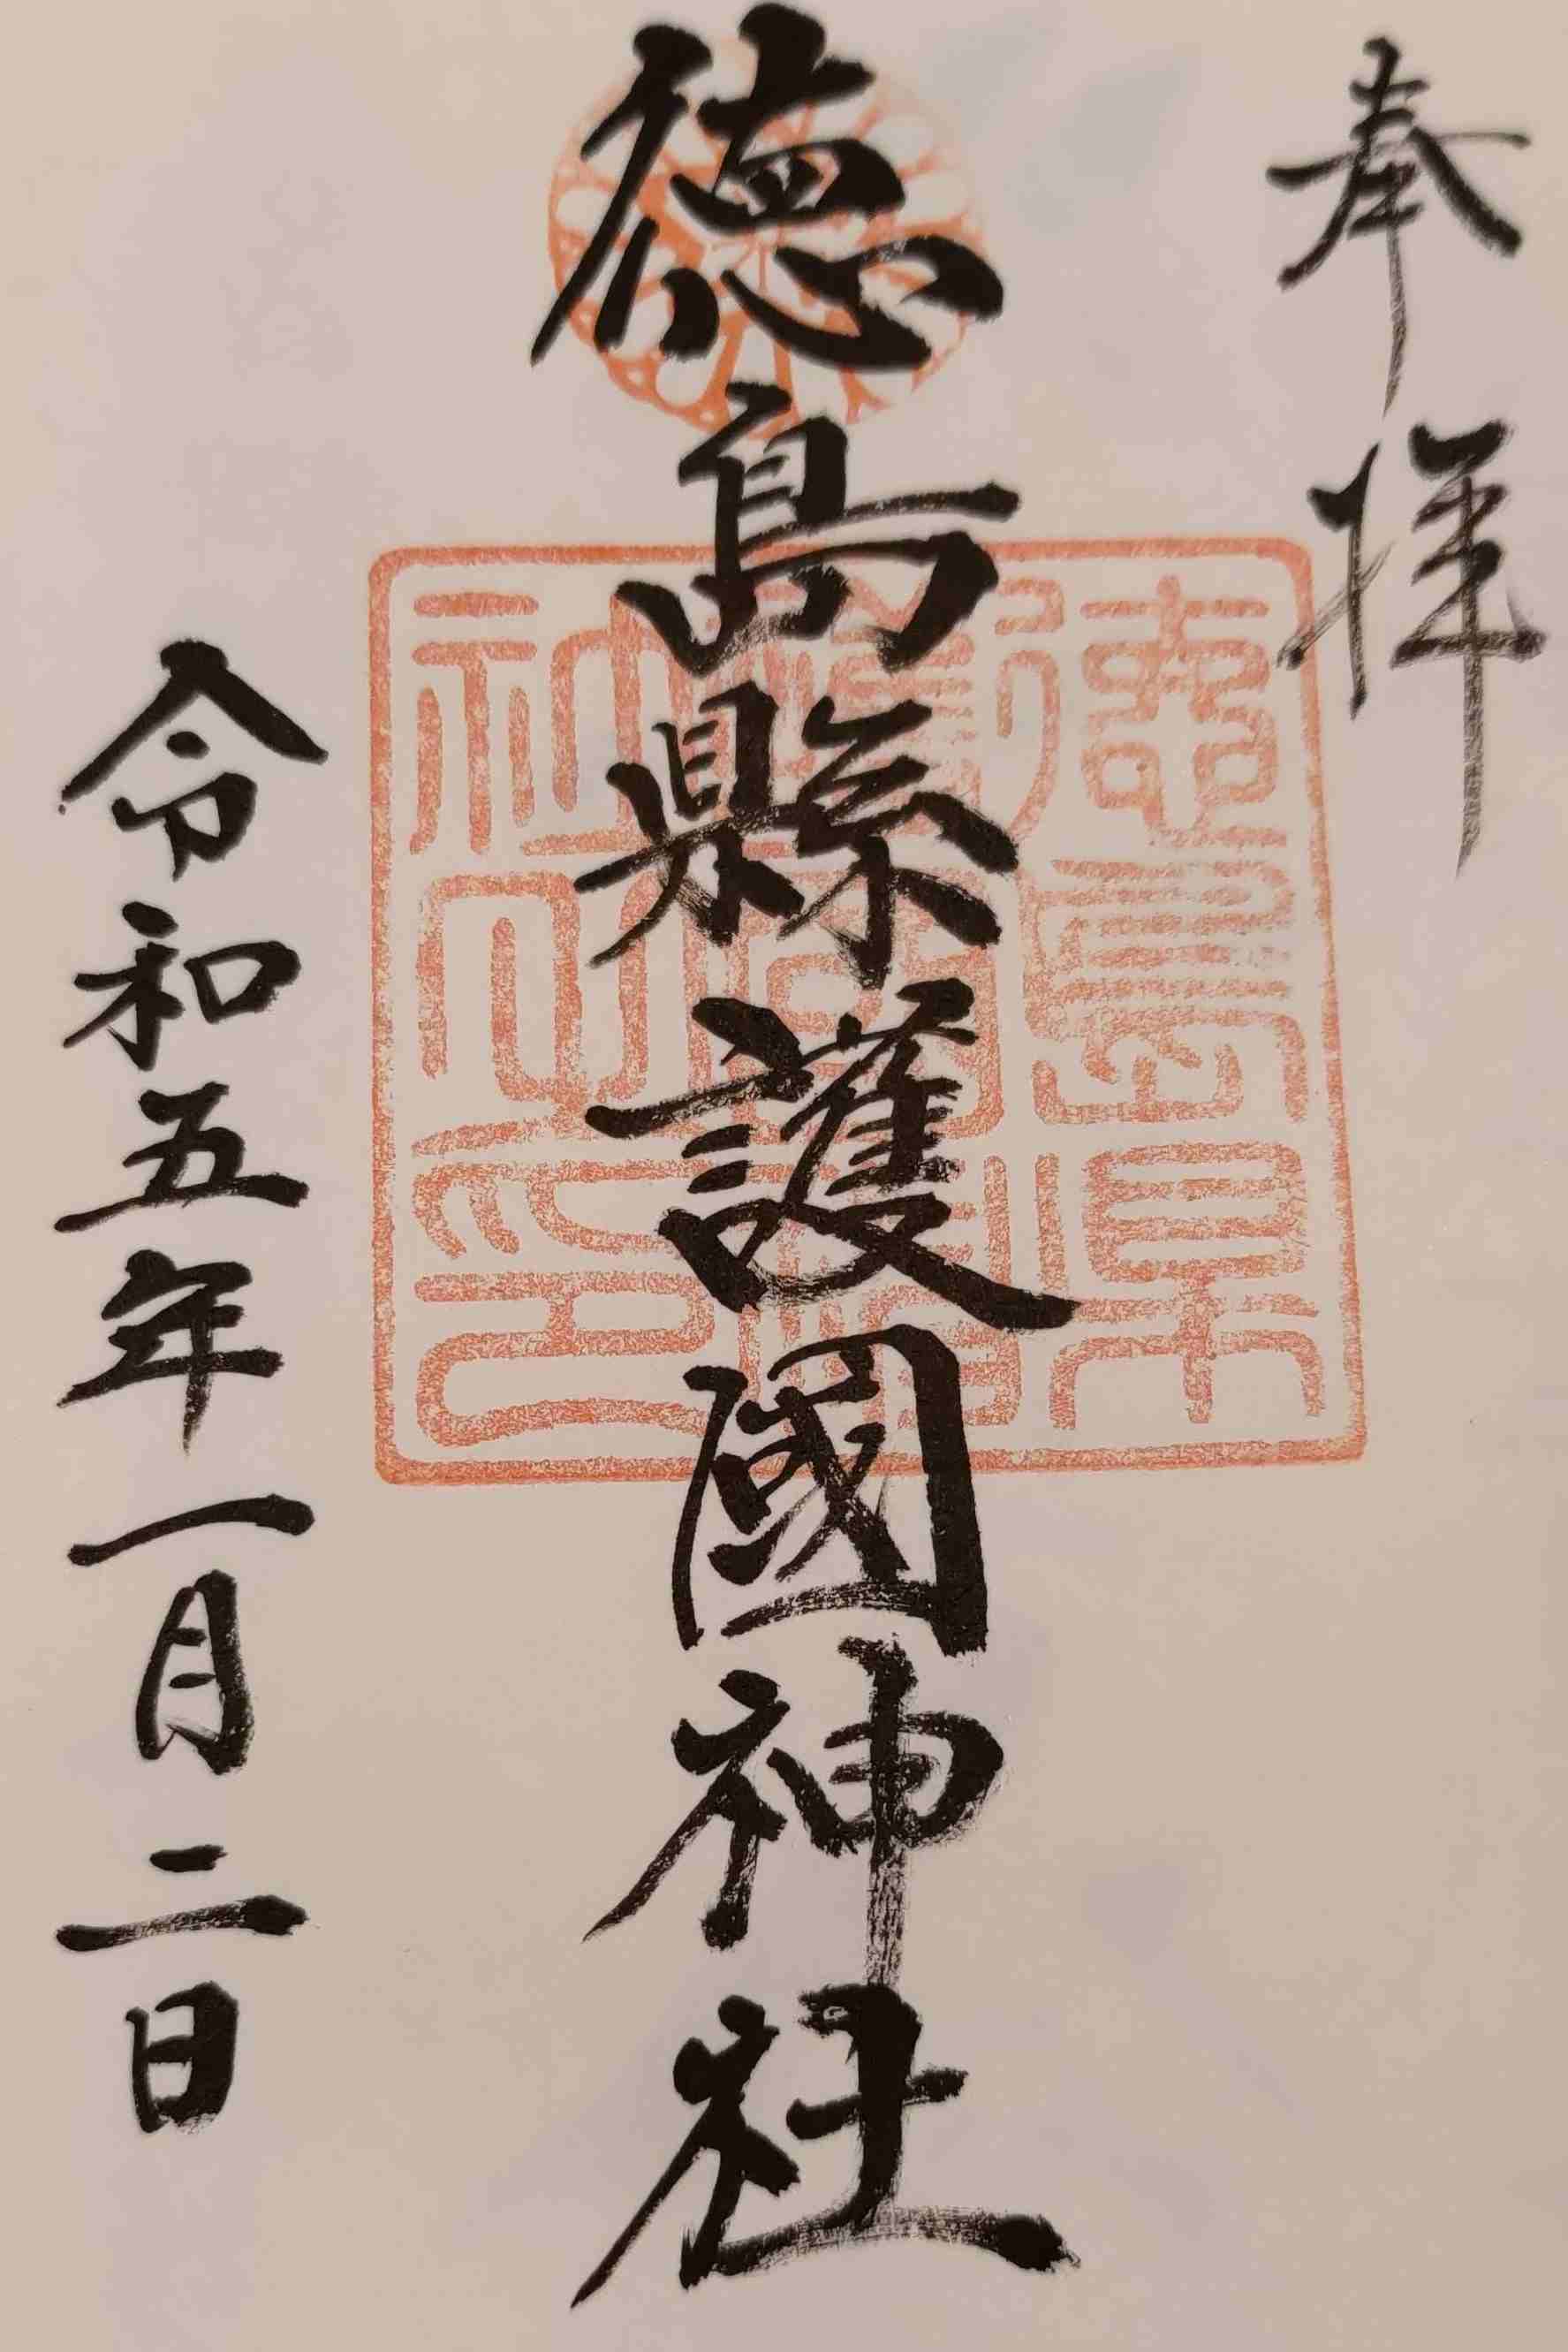 奉拝
徳島縣護國神社
徳島県
護國神
社之印
令和五年一月二日